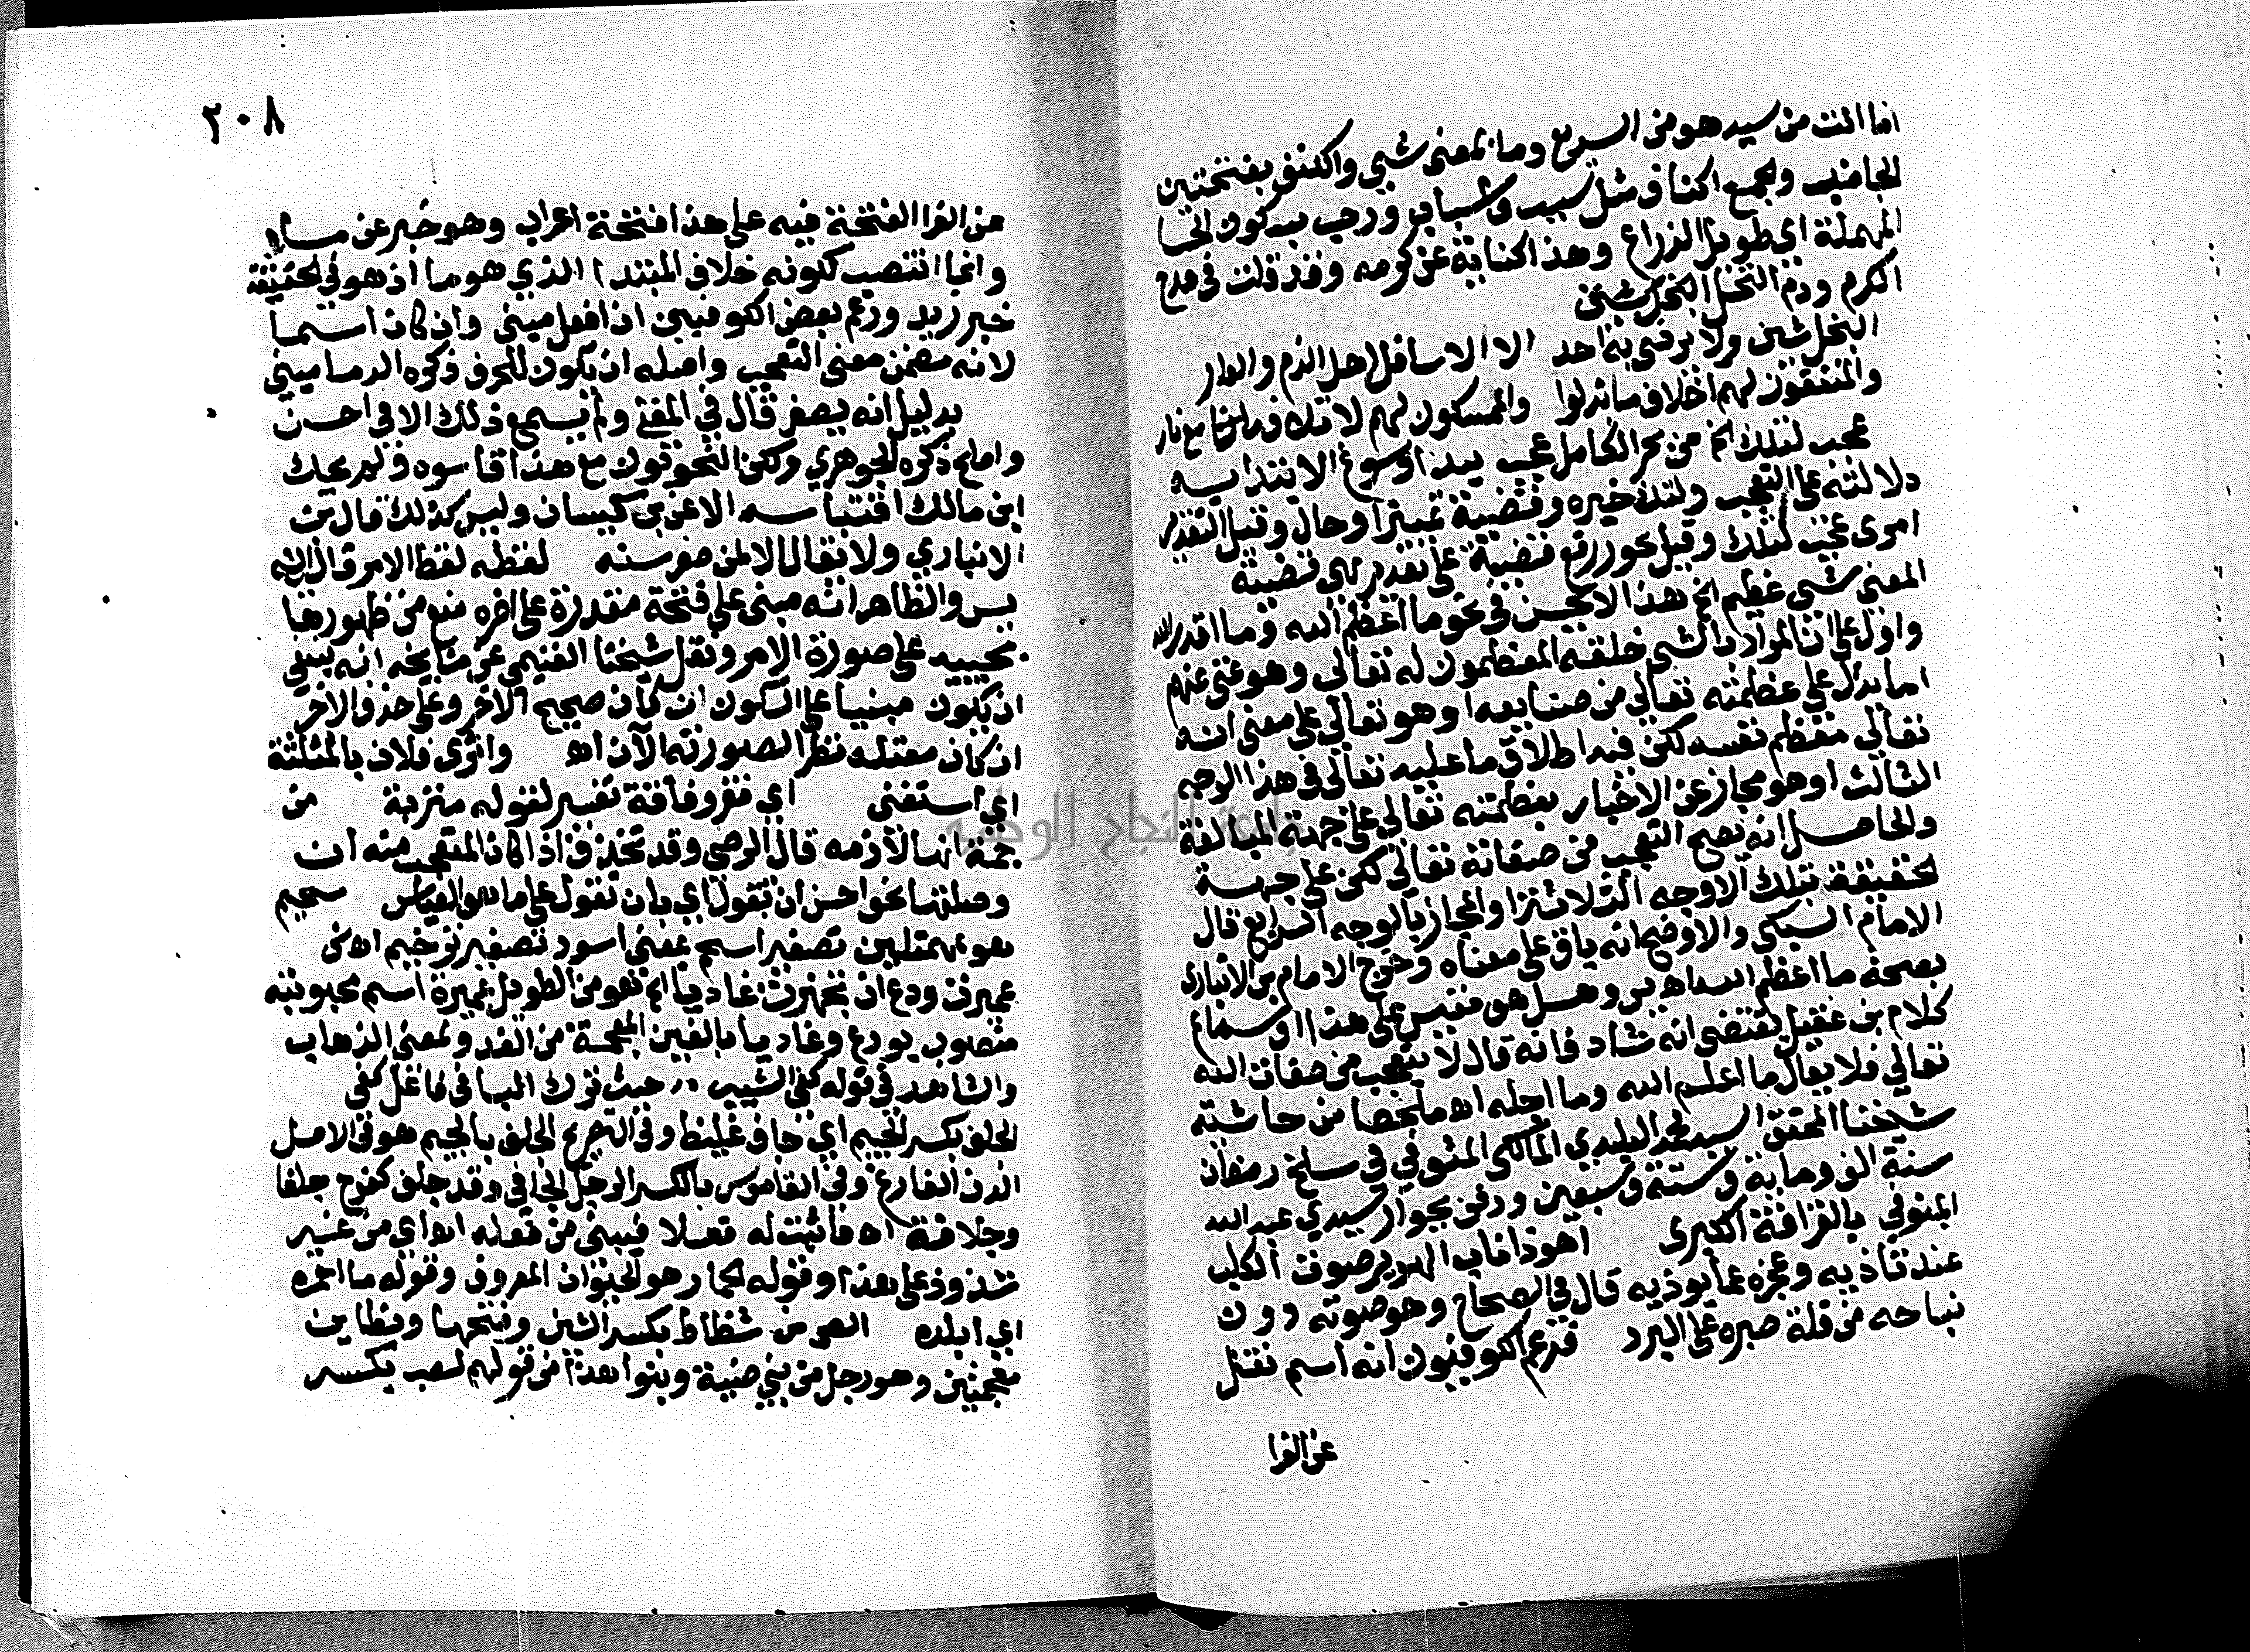 ما انت من سيد هو من السريع وما بمعنى شيء والكنف بفتحتين
الجانب والجمع اكناف مثل سبب واسباب ورحب بسكون الحا
المهملة اي طويل الذراع وهذا كناية عن كرمه وقد قلت في مدح
الكرم وذم البخل البخل شين
البخل شين ولا يرضى به احد الا الاسافل اهل الذم والعار
والمنفقون لهم اخلاف ما بذلوا والممسكون لهم لا تلف مع نار
عجب لتلك الخ من بحر الكامل عجب مبتدا وسوغ الابتدا به
دلالته على التعجب ولتلك خبره وقضية تمييز او حال وقيل التقدير
امري عجب لتلك وقيل يجوز رفع قضية على تقدير هي قضية
المعنى شي عظيم الخ هذا لا يحسن في نحو ما اعظم الله وما اقدر الله
واول على ان المراد بالشي خلقه المعظمون له تعالى وهو غني عنهم
او ما يدل على عظمته تعالى من صنايعه او هو تعالى على معنى انه
تعالى معظم نفسه لكن فيه اطلاق ما عليه تعالى في هذا الوجه
الثالث او هو مجاز عن الاخبار بعظمته تعالى على جهة المبالغة
والحاصل انه يصح التعجب من صفاته تعالى لكن على جهة
الحقيقة بتلك الاوجه الثلاثة او المجاز بالوجه الرابع قال
الامام السبكي والاوضح انه باق على معناه وخرج الامام بن الانباري
بصحة ما اعظم الله اه بس وهل هو مقيس على هذا او سماع
كلام بن عقيل يقتضي انه شاذ فانه قال لا يتعجب من صفات الله
تعالى فلا يقال ما اعلم الله وما اجله اه ملخصا من حاشية
شيخنا المحقق السيد محمد البليدي المالكي المتوفى في سلخ رمضان
سنة الف ومايه وستة وسبعين ودفن بجوار سيدي عبد الله
المنوفي بالقرافة الكبرى اهو ذا ناب الهرير صوت الكلب
عند تاذيه وعجزه عما يوذيه قال في الصحاح وهو صوته دون
نباحه من قلة صبره على البرد فزعم الكوفيون انه اسم نقل
عن الفرا
٢٠٨
عن الفرا الفتحة فيه على هذا فتحة اعراب وهو خبر عن ما
وانما انتصب لكونه خلاف المبتدا الذي هو ما اذ هو في الحقيقة
خبر زيد وزعم بعض الكوفيين ان افعل مبني وان كان اسما
لانه مضمن معنى التعجب واصله ان يكون للحرف ذكره الدماميني
بدليل انه يصغر قال في المغني ولم يسمع ذلك الا في احسن
واملح ذكره الجوهري ولكن النحويون مع هذا قاسوه ولم يحك
ابن مالك اقتياسه الا عن بن كيسان وليس كذلك قال بن
الانباري ولا يقال الا لمن صغر سنه لفظه لفظ الامر قال
يس والظاهر انه مبني على فتحة مقدرة على اخره منع من ظهورها
مجييه على صورة الامر ونقل شيخنا الغنيمي عن مشايخه انه ينبغي
ان يكون مبنيا على السكون ان كان صحيح الاخر وعلى حذف الاخر
ان كان معتله نظرا لصورته الآن اه واثرى فلان بالمثلثة
اي استغنى اي فقر وفاقة تفسير لقوله متربة من
جهة انها لازمه قال الرضي وقد تحذف اذا كان المتعجب منه ان
وصلتها نحو احسن ان تقول اي بان تقول على ما هو القياس سحيم
هو بمهملتين تصغير اسحم بمعنى اسود تصغير ترخيم اه ش
عميرة ودع ان تجهزت غاديا الخ هو من الطويل عميرة اسم محبوبته
منصوب بودع وغاديا بالغين المعجمة من الغد وبمعنى الذهاب
والشاهد في قوله كفى الشيب حيث ترك البا في فاعل كفى
الجلف بكسر الجيم اي جاف غليظ وفي التصريح الجلف بالجيم هو في الاصل
الدن الفارغ وفي القاموس بالكسر الرجل الجافي وقد جلف كفرح جلفا
وجلافة اه فاثبت له فعلا فيبنى من فعله اه اي من غير
شذوذ على هذا وقوله الحمار هو الحيوان المعروف وقوله ما احمره
اي ابلده الص من شظاظ بكسر الشين وفتحها وبظاين
معجمتين وهو رجل من بني ضبة وبنوا هذا من قولهم لصب بكسر